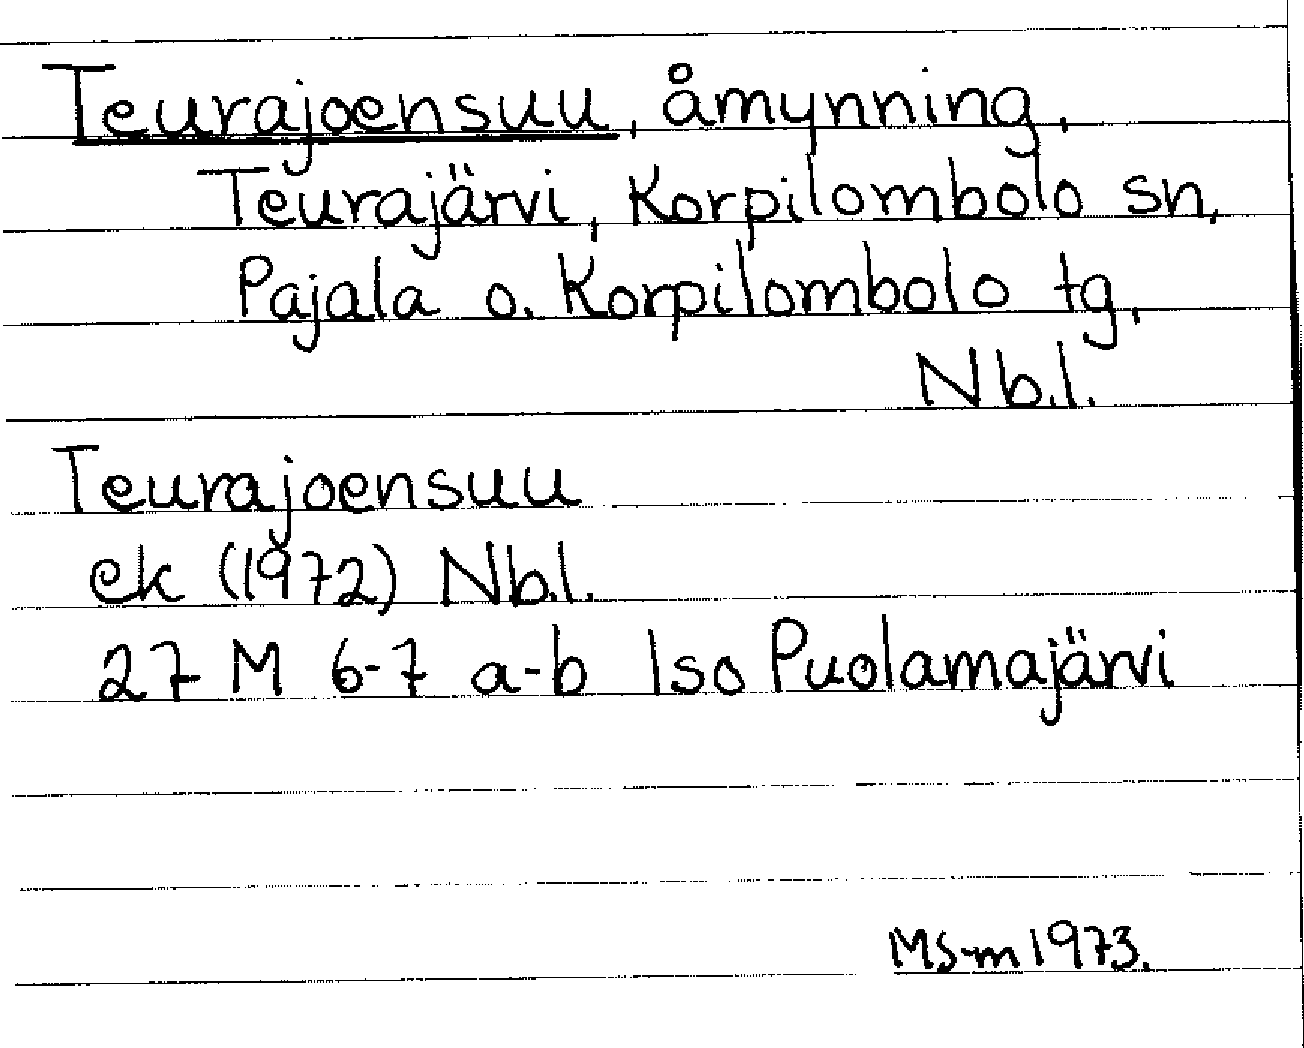 Teurajoensuu, åmynning,
Teurajärvi, Korpilombolo sn,
Pajala o. Korpilombolo tg,
Nb.l.
Teurajoensuu
ek (1972) Nb.l.
27 M 6-7 a-b Iso Puolamajärvi
MS-m 1973.